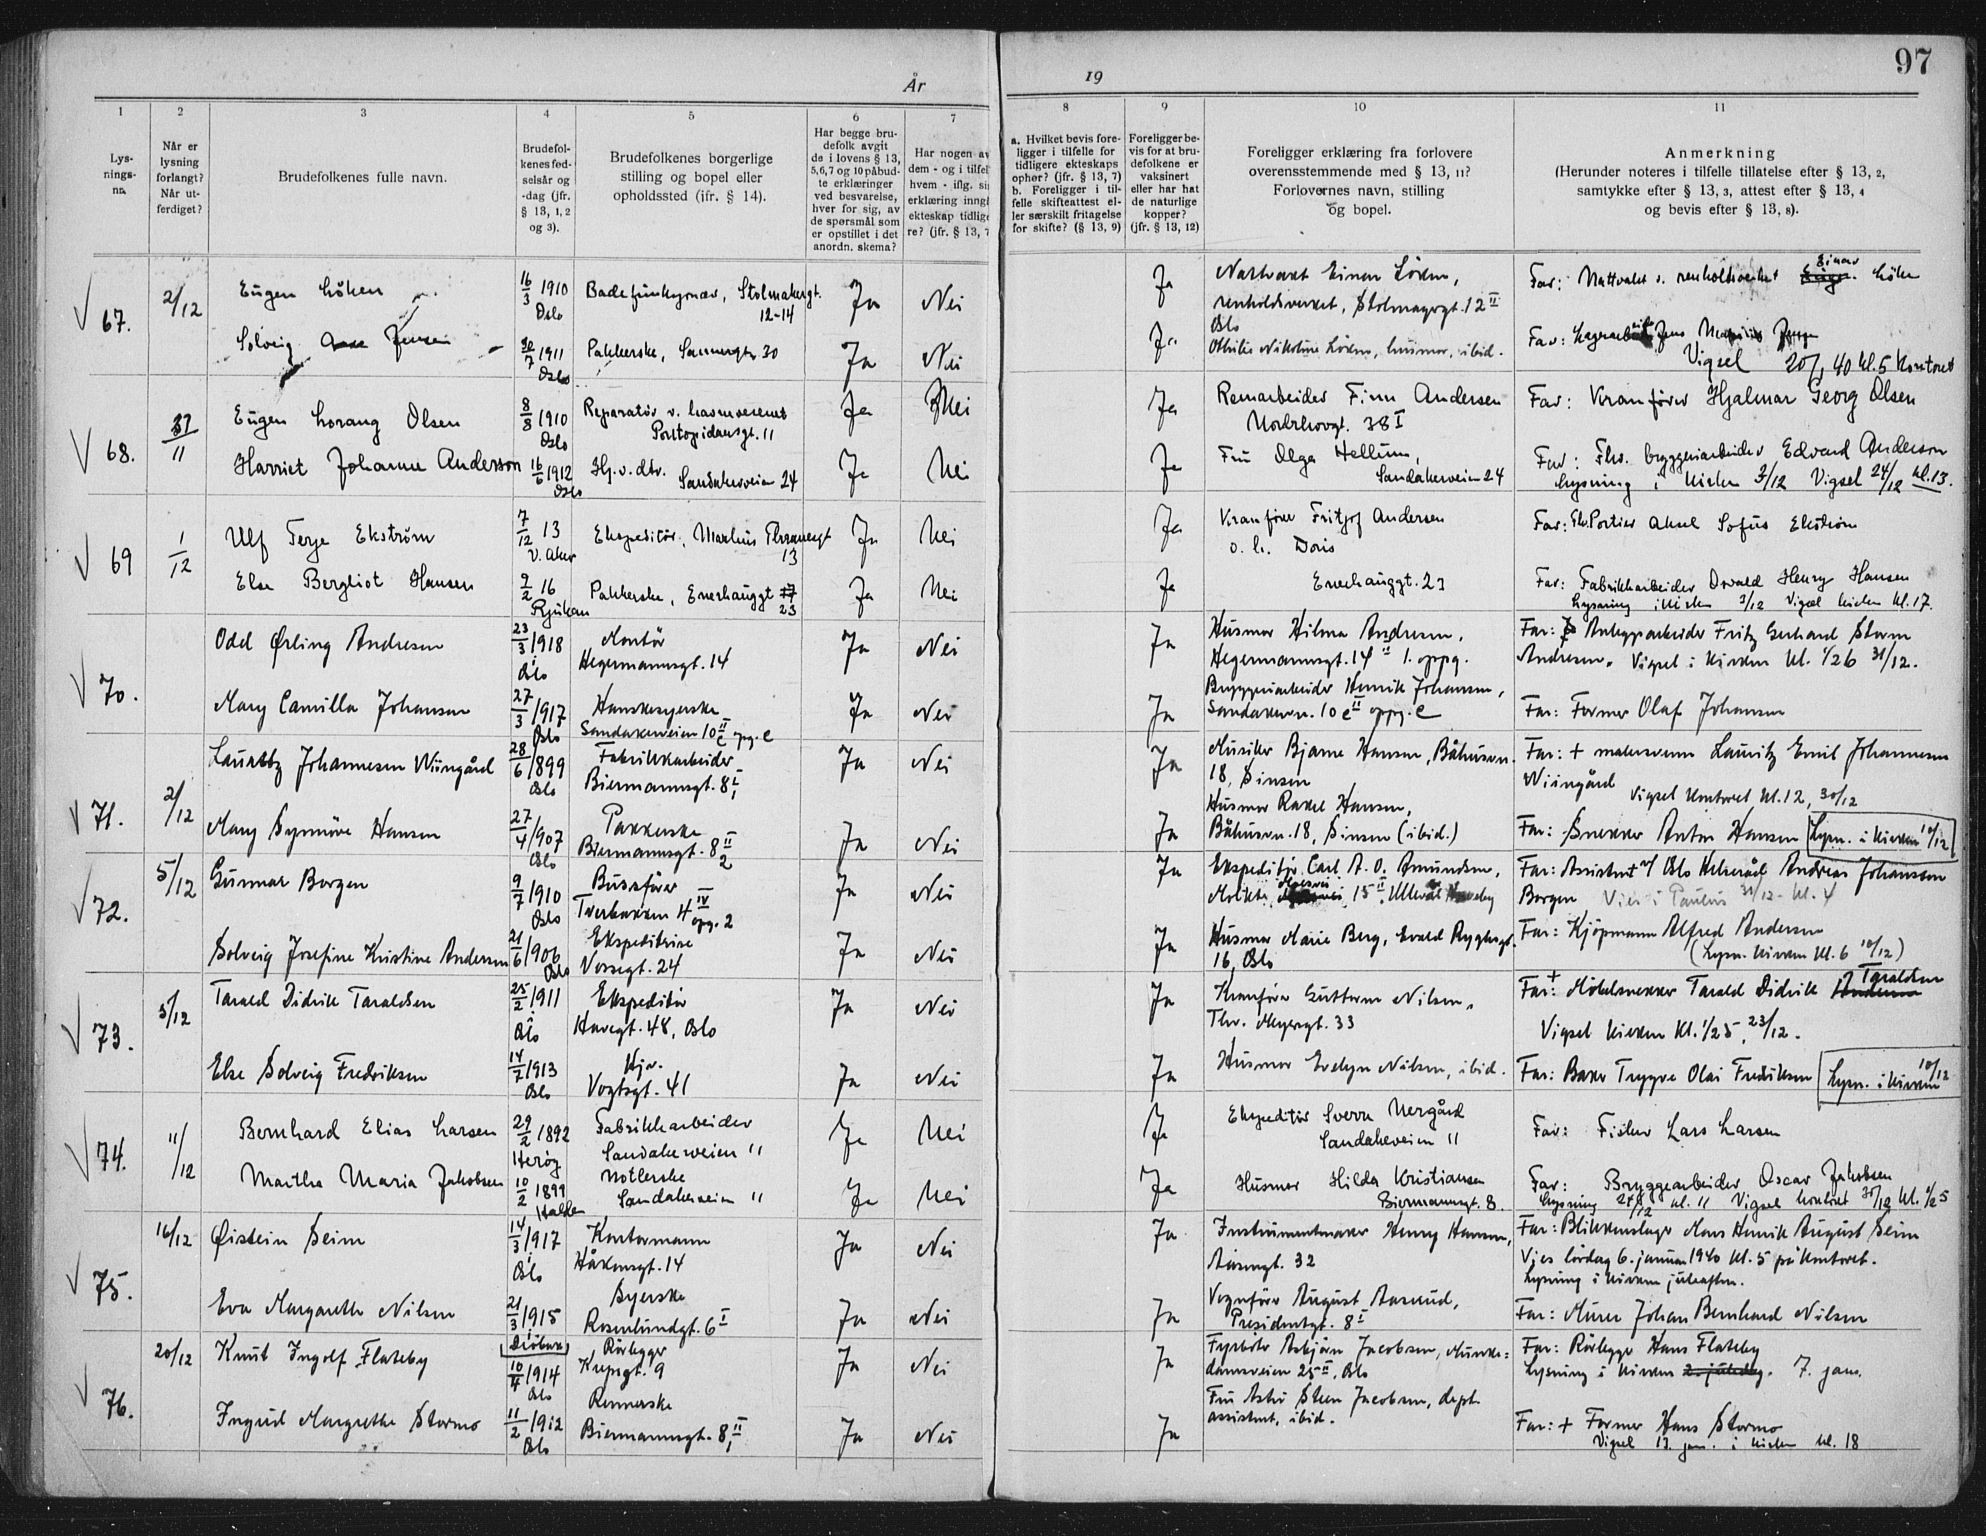 97
År 19
1 2 3 4 5 6 7 8 9 10 11
Lys-
nings-
nr.
Når er
lysning
forlangt?
Når ut-
ferdiget?
Brudefolkenes fulle navn.
Brudefol-
kenes fød-
selsår og
-dag (jfr.
§ 13, 1, 2
og 3).
Brudefolkenes borgerlige
stilling og bopel eller
opholdssted (jfr. § 14).
Har begge bru-
defolk avgit
de i lovens § 13,
5, 6, 7 og 10 påbud-
te erklæringer
ved besvarelse,
hver for sig, av
de spørsmål som
er opstillet i det
anordn. skema?
Har nogen av
dem - og i tilfel
hvem - iflg. si
erklæring inng
ekteskap tidlig
re? (jfr. § 13, 7
a. Hvilket bevis fore-
ligger i tilfelle for
tidligere ekteskaps
ophør? (jfr. § 13, 7)
b. Foreligger i til-
felle skifteattest el-
ler særskilt fritagelse
for skifte? (§ 13, 9)
Foreligger be-
vis for at bru-
defolkene er
vaksinert
eller har hat
de naturlige
kopper?
(jfr. § 13, 12)
Foreligger erklæring fra forlovere
overensstemmende med § 13, 11?
Forlovernes navn, stilling
og bopel.
Anmerkning
(Herunder noteres i tilfelle tillatelse efter § 13, 2,
samtykke efter § 13, 3, attest efter § 13, 4
og bevis efter § 13, 8).
67. 2/12 Eugen Löken 16/3 1910 Oslo Stolmakergt. 12-14 Ja Nei Ja
Solveig Jensen 30/7 1911 Oslo Pakkerske, 30 Ja Nei Ja
Vigsel 20/1 40 kl. 5 Kontoret
68. 11 Eugen Olsen 8/8 1910 Oslo Reparatör v. Pontopidansgt. 11 Ja Nei Ja Finn Andersen 38 I Far: Kranförer Hjalmar Georg Olsen
Harriet Johanne Anderson 16/6 1912 Oslo Hj. v. Sandakerveien 24 Ja Nei Ja Fru Olga Hellum, Sandakerveien 24 Far: bryggeriarbeider Edvard Anderson
Lysning i kirken 3/12 Vigsel 24/12 kl. 13.
69 1/12 Ulf Terje Ekström 7/12 13 V. Aker Ekspeditör, Markus Thranesgt 13 Ja Nei Ja Kranförer Fritjof Andersen Far: Portier Aksel Sofus Ekström
o. h. Doris
Else Bergliot Hansen 9/2 16 Rjukan Pakkerske, Enerhauggt 23 Ja Nei Ja Enerhauggt. 23 Far: Fabrikkarbeider Osvald Henry Hansen
Lysning i kirken 3/12 Vigsel kirken kl. 17.
70. Odd Ørling Andresen 23/3 1918 Oslo Montör Hegermannsgt. 14 Ja Nei Ja Husmor Hilma Andresen, Hegermannsgt. 14 II 1. oppg. Far: Anleggsarbeider Fritz Gerhard Storm
Andresen. Vigsel i kirken kl. 1/2 6 31/12.
Mary Camilla Johansen 27/3 1917 Oslo Hanskesyerske Sandakerveien 10 c II opg. C Ja Nei Ja Bryggeriarbeider Henrik Johansen, Sandakervn. 10 c II oppg. C Far: Former Olaf Johansen
71. 2/12 Johannesen Wiingård 28/6 1899 Oslo Fabrikkarbeider Biermannsgt. 8 I Ja Nei Ja Musiker Bjarne Hansen, Båhusvn. 18, Sinsen Far: + malersvenn Lauritz Emil Johannesen
Wiingård Vigsel kontoret kl. 12, 30/12
Mary Synnöve Hansen 27/4 1907 Oslo Pakkerske Biermannsgt. 8 II 2 Ja Nei Ja Husmor Rakel Hansen, Båhusvn. 18, Sinsen (ibid.) Far: Snekker Anton Hansen Lysn. i kirken 10/12
72. 5/12 Gunnar Borgen 9/7 1910 Oslo Bussförer Tverbakken 4 IV opg. 2 Ja Nei Ja Ekspeditör Carl A. O. Amundsen, Far: Assistent v/ Oslo Andreas Johanssen
Borgen Vies i Paulus 31/12 - kl. 4
Solveig Josefine Kristine Andersen 21/6 1906 Oslo Ekspeditrise Vossegt. 24 Ja Nei Ja Husmor Marie Berg, Evald Ryghsgt. 16, Oslo Far: Kjöpmann Alfred Andersen
(Lysn. kirken kl. 6 10/12)
73. 5/12 Tarald Didrik Taraldsen 25/2 1911 Oslo Ekspeditör Havegt. 48, Oslo Ja Nei Ja Kranförer Guttorm Nilsen, Thv. Meyersgt. 33 Far: + Möbelsnekker Tarald Didrik Taraldsen
Vigsel kirken kl. 1/2 5, 23/12.
Else Solveig Fredriksen 14/7 1913 Oslo Hjv. Vogtsgt. 41 Ja Nei Ja Husmor Evelyn Nilsen, ibid. Far: Baker Trygve Olai Fredriksen Lysn. i kirken 10/12
74. 11/12 Bernhard Elias Larsen 29/2 1892 Heröy Fabrikkarbeider Sandakerveien 11 Ja Nei Ja Ekspeditör Sverre Nergård Sandakerveien 11 Far: Fisker Lars Larsen
Martha Maria Jakobsen 10/2 1899 Halden Sandakerveien 11 Ja Nei Ja Husmor Hilda Kristiansen Biermannsgt. 8. Far: Bryggearbeider Oscar Jakobsen
Lysning 24/12 kl. 11 Vigsel kontoret 30/12 kl. 1/2 5
75. 16/12 Øistein Seim 14/3 1917 Oslo Kontormann Håkonsgt. 14 Ja Nei Ja Instrumentmaker Henry Hansen, 32 Far: Blikkenslager Mons Henrik August Seim
Vies lördag 6. januar 1940 kl. 5 på kontoret.
Lysning i kirken juleaften.
Eva Margarethe Nilsen 21/3 1915 Dröbak Syerske Rosenlundgt. 6 I Ja Nei Ja Vognförer August Aaserud, Presidentgt. 8 I Far: Murer Johan Bernhard Nilsen
76. 20/12 Knut Ingolf Flateby 10/4 1914 Oslo Rörlegger 9 Ja Nei Ja Fyrböter Asbjörn Jacobsen, Munkedamsveien 25 II, Oslo Far: Rörlegger Hans Flateby
Lysning i kirken 2. juledag. 7 jan.
Ingrid Margrethe Stormo 11/2 1912 Oslo Biermannsgt. 8 II Ja Nei Ja Fru Astri Steen Jacobsen, dept. assistent, ibid. Far: + Former Hans Stormo
Vigsel 13. jan. i kirken kl. 18